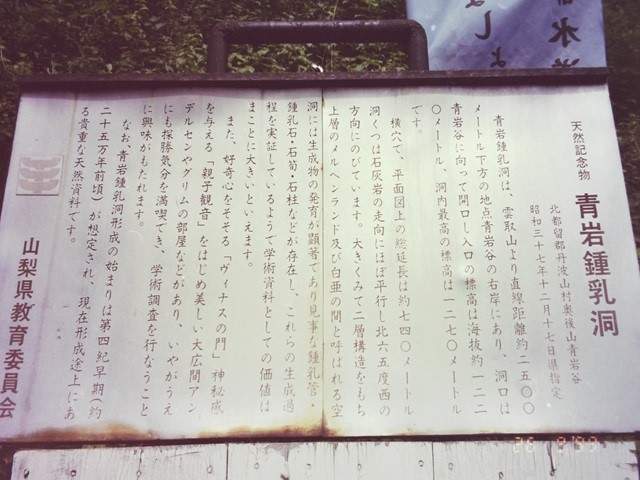 天然記念物 青岩鍾乳洞
北都留郡丹波山村奥後山青岩谷
昭和三十七年十二月十七日県指定
青岩鍾乳洞は、雲取山より直線距離約二五〇〇
メートル下方の地点青岩谷の右岸にあり、洞口は
青岩谷に向って開口し入口の標高は海抜約一二二
〇メートル、洞内最高の標高は一二七〇メートル
です。
横穴で、平面図上の総延長は約七四〇メートル
洞くつは石灰岩の走向にほぼ平行し北六五度西の
方向にのびています。大きくみて二層構造をもち
上層のメルヘンランド及び白亜の間と呼ばれる空
洞には生成物の発育が顕著であり見事な鍾乳管・
鍾乳石・石筍・石柱などが存在し、これらの生成過
程を実証しているようで学術資料としての価値は
まことに大きいといえます。
また、好奇心をそそる「ヴィナスの門」神秘感
を与える「親子観音」をはじめ美しい大広間アン
デルセンやグリムの部屋などがあり、いやがうえ
にも探勝気分を満喫でき、学術調査を行なうこと
に興味がもたれます。
なお、青岩鍾乳洞形成の始まりは第四紀早期(約
二十五万年前頃)が想定され、現在形成途上にあ
る貴重な天然資料です。
山梨県教育委員会
水
しょ
26 8'99